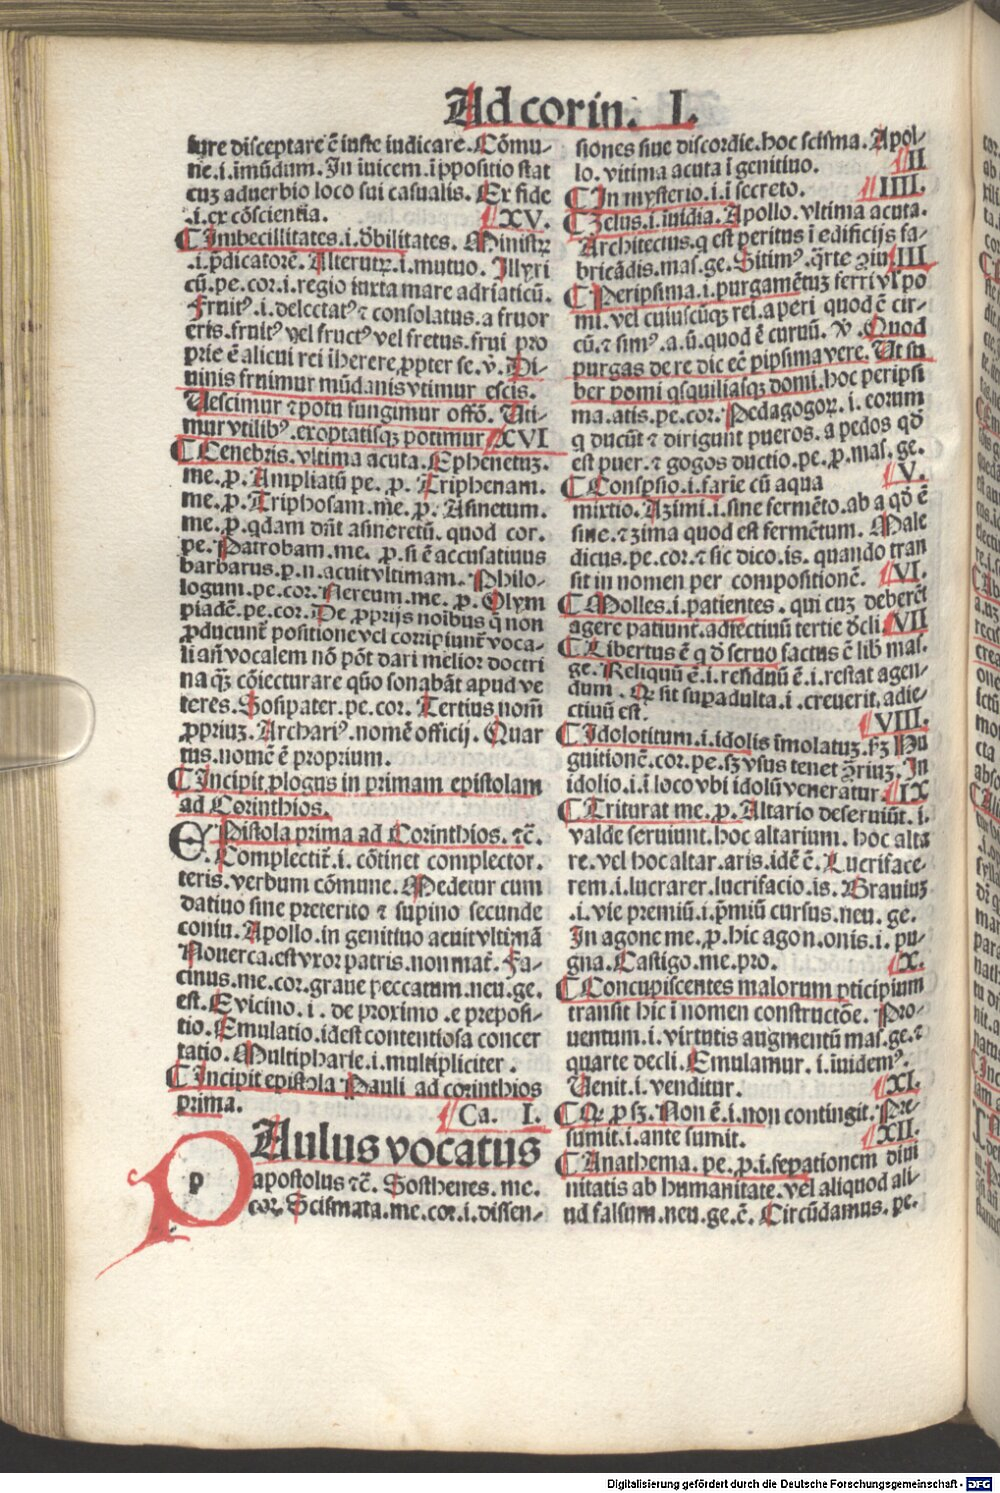 Ad corin. I.
iure disceptare ē iuste iudicare. Cōmu-
ne .i. imūdum. In iuicem .i ppositio stat
cuȝ aduerbio loco sui casualis. Ex fide
.i. ex cōscientia. XV.
Imbecillitates .i. dbilitates. Ministrꝝ
.i. p̄dicatorē. Alterutꝝ .i. mutuo. Illyri
cū. pe. cor. i. regio iuxta mare adriaticū.
Fruitꝰ .i. delectatꝰ ⁊ consolatus. a fruor
eris. fruitꝰ vel fructꝰ vel fretus. frui pro
prie ē alicui rei iherere ꝓpter se. v̄. Di-
uinis fruimur mūdanis vtimur escis.
Uescimur ⁊ potu fungimur offō. Uti-
mur vtilibꝰ. exoptatisqȝ potimur XVI
Cenebris. vltima acuta. Ephenetuȝ.
me. ꝓ. Ampliatū pe. ꝓ. Triphenam.
me. ꝓ. Triphosam. me. ꝓ. Asinetum.
me. ꝓ. qdam dn̄t asineretū. quod cor.
pe. Patrobam. me. ꝓ. si ē accusatiuus
barbarus. ꝓ. n. acuit vltimam. Philo-
logum. pe. cor. Nereum. me. ꝓ. Olym
piadē. pe. cor. De ꝓprijs noibus q non
ꝓducunt̄ positione vel corripiunt̄ voca-
li an̄ vocalem nō pōt dari melior doctri
na qȝ cōiecturare quō sonabāt apud ve
teres. Sosipater. pe. cor. Tertius nom̄
ꝓpriuȝ. Archariꝰ. nomē officij. Quar
tus. nomē ē proprium.
Incipit plogus in primam epistolam
ad Corinthios.
EPistola prima ad Corinthios. ⁊c̄.
. Complectit̄ .i. cōtinet complector.
teris. verbum cōmune. Medetur cum
datiuo sine preterito ⁊ supino secunde
coniu. Apollo. in genitiuo acuit vltimā
Nouerca. est vxor patris. non mat̄. Fa-
cinus. me. cor. graue peccatum. neu. ge.
est. E vicino .i. de proximo. e preposi-
tio. Emulatio. idest contentiosa concer
tatio. Multipharie .i. multipliciter.
Incipit epistola Pauli ad corinthios
prima. Ca. I.
p
PAulus vocatus
apostolus ⁊c̄. Sosthenes. me.
cor. Scismata. me. cor. i. dissen-
siones siue discordie. hoc scisma. Apol-
lo. vltima acuta ī genitiuo. II
In mysterio .i. ī secreto. IIII.
Zelus .i. inuidia. Apollo. vltima acuta.
Architectus. q est peritus ī edificijs fa-
bricādis. mas. ge. Sitimꝰ. q̄rte III
Peripsima .i. purgamētuȝ ferri vl po
mi. vel cuiuscūqȝ rei. a peri quod ē cir-
cū. ⁊ simꝰ. a. ū. quod ē curuū. v̄. Quod
purgas de re dic eē pipsima vere. Ut su
ber pomi qsquiliasqȝ domi. hoc peripsi
ma. atis. pe. cor. Pedagogoꝝ .i. eorum
q ducūt ⁊ dirigunt pueros. a pedos qd̄
est puer. ⁊ gogos ductio. pe. ꝓ. mas. ge.
Conspsio .i. farie cū aqua V.
mixtio. Azimi .i. sine fermēto. ab a qd̄ ē
sine. ⁊ zima quod est fermētum. Male
dicus. pe. cor. ⁊ sic dico. is. quando tran
sit in nomen per compositionē. VI.
Molles .i. patientes. qui cuȝ deberēt
agere patiunt̄. adiectiuū tertie dcli. VII
Libertus ē q d̄ seruo factus ē lib mas.
ge. Reliquū ē .i. residuū ē .i. restat agen-
dum. Qꝛ sit supadulta .i. creuerit. adie-
ctiuū est. VIII.
Idolotitum .i. idolis īmolatuȝ. sȝ Pu
gnitionē. cor. pe. sȝ vsus tenet ꝯ̄riuȝ. In
idolio .i. ī loco vbi idolū venerātur. IX
Triturat me. ꝓ. Altario deseruiūt .i.
valde seruiunt. hoc altarium. hoc alta
re. vel hoc altar. aris. idē ē. Lucriface-
rem .i. lucrarer. lucrifacio. is. Brauiuȝ
.i. vie premiū .i. p̄miū cursus. neu. ge.
In agone me. ꝓ. hic agon. onis. i. pu-
gna. Castigo. me. pro. X.
Concupiscentes malorum pticipium
transit hic ī nomen constructōe. Pro-
uentum .i. virtutis augmentū mas. ge. ⁊
quarte decli. Emulamur .i. īuidemꝰ.
Uenit .i. venditur. XI.
Qꝛ ꝓ sȝ. Non ē .i. non contingit. Pre-
sumit .i. ante sumit. XII.
Anathema. pe. ꝓ. i. sepationem diui
nitatis ab humanitate. vel aliquod ali-
ud falsum. neu. ge. ē. Circūdamus. pe.
Digitalisierung gefördert durch die Deutsche Forschungsgemeinschaft - DFG